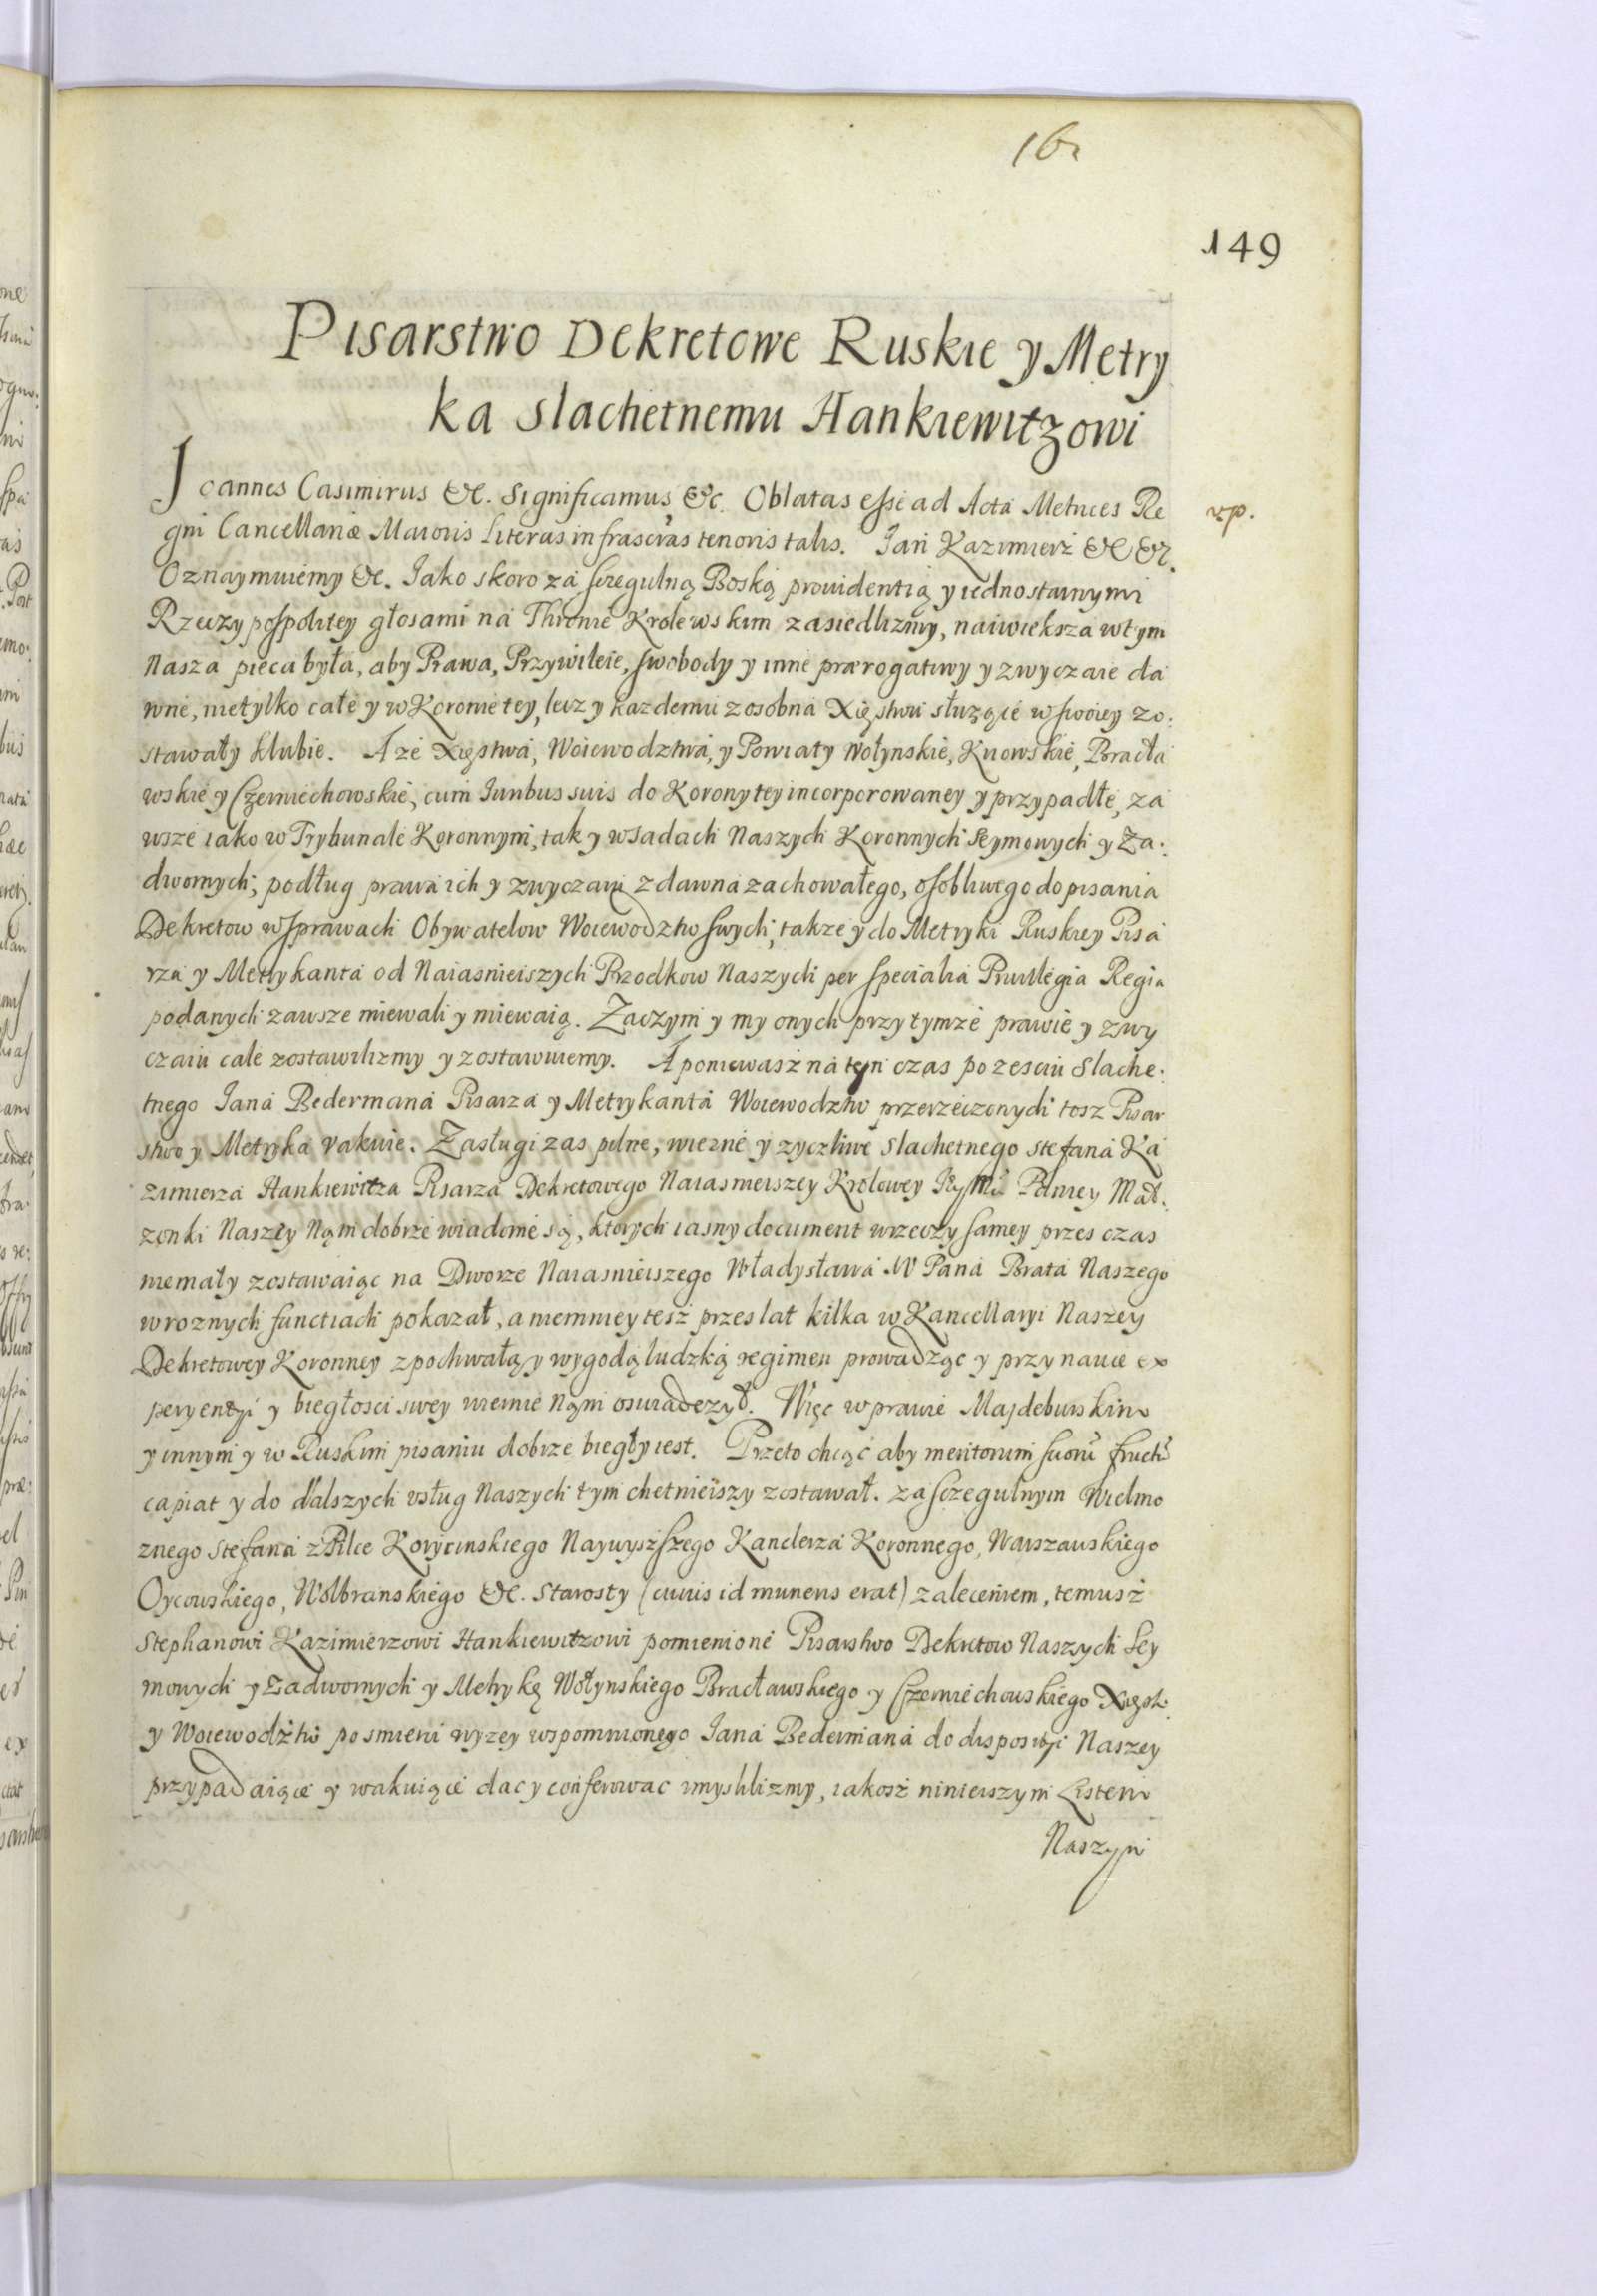 16
149
Pisarstwo Dekretowe Ruskie y Metry
ka Slachetnemu Hankiewitzowi
Joannes Casimirus &c. Significamus &c. Oblatas esse ad Acta Metrices Re
vp.
gni Cancellariæ Maioris Literas infrascr̃as tenoris talis. Jan Kazimierz &c &c.
Oznaymuiemy &c. Jako skoro zá sczegulną Boską prouidentią y iednostaynymi
Rzeczypospolitey głosami ná Thronie Krolewskim zasiedlizmy, naiwieksza wtym
Nasza piecza była, aby Prawa, Przywileie, swobody y inne prærogatiwy y zwyczaie dá
wne, nietylko całe y w Koronie tey, lecz y każdemu zosobná Xięstwu służące w swoiey zo:
stawały klubie. A że Xięstwá, Woiewodztwá, y Powiaty Wołynskie, Kiiowskie, Bracłá
wskie y Czerniechowskie, cum Juribus suis do Korony tey incorporowaney y przypadłe, zá
wsze iako w Trybunale Koronnym, tak y wsadach Naszych Koronnych Seymowych y Za:
dwornych, podług prawá ich y zwyczaiu zdawná zachowałego, osobliwego do pisania
Dekretow w sprawach Obywatelow Woiewodztw swych, także y do Metryki Ruskiey Pisá
rzá y Metrykantá od Naiasnieiszych Przodkow Naszych per specialia Priuilegia Regia
podanych zawsze miewali y miewaią. Zaczym y my onych przy tymże prawie y zwy
czaiu cale zostawilizmy y zostawuiemy. A poniewasz ná ten czas po zesciu Slache:
tnego Janá Bedermaná Pisarzá y Metrykantá Woiewodztw przerzeczonych tosz Pisar
stwo y Metryká vakuie. Zasługi zas pilne, wierne y zyczliwe Slachetnego Stefaná Ká
zimierzá Hankiewitza Pisarzá Dekretowego Naiasnieiszey Krolowey Paniey Mał:
zonki Naszey Nąm dobrze wiadome są, ktorych iasny document w rzeczy samey przes czas
niemały zostawaiąc na Dworze Naiasnieiszego Władysławá IV Paná Bratá Naszego
w roznych functiach pokazał, a niemniey tesz przes lat kilka w Kancellaryi Naszey
Dekretowey Koronney z pochwałą y wygodą ludzką regimen prowadząc y przy nauce ex
peryentyi y biegłosci swey wiernie Nąm oswiadczył. Więc w prawie Majdeburskim
y innym y w Ruskim pisaniu dobrze biegły iest. Przeto chcąc aby meritorum suorũ fructũ
capiat y do dalszych vsług Naszych tym chetnieiszy zostawał. zá sczegulnym Wielmo
znego Stefaná z Pilce Korycinskiego Naywyszszego Kanclerzá Koronnego, Warszawskiego
Oycowskiego, Wolbramskiego &c. Starosty (cuius id muneris erat) zaleceniem, temusz
Stephanowi Kazimierzowi Hankiewitzowi pomienione Pisarstwo Dekretow Naszych Sey
mowych y Zadwornych y Metrykę Wołynskiego Bracławskiego y Czerniechowskiego Xięst:
y Woiewodztw po smierci wyzey wspomnionego Janá Bedermaná do disposityi Naszey
przypadaiące y wakuiące dac y conferowac vmyslilizmy, iakosz ninieiszym Listem
Naszym